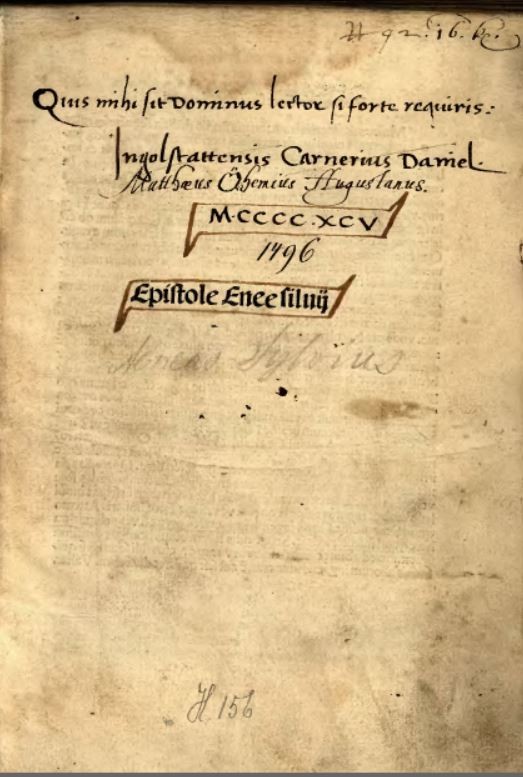 92. 16.
Quis mihi sit Dominus lector si forte requiris:
Ingolstattensis Carnerius Daniel.
Matthæus Öhemius Augustanus.
M·CCCC·XCV
1496
Epistole Enee siluij
Aeneas Sylvius
H. 156